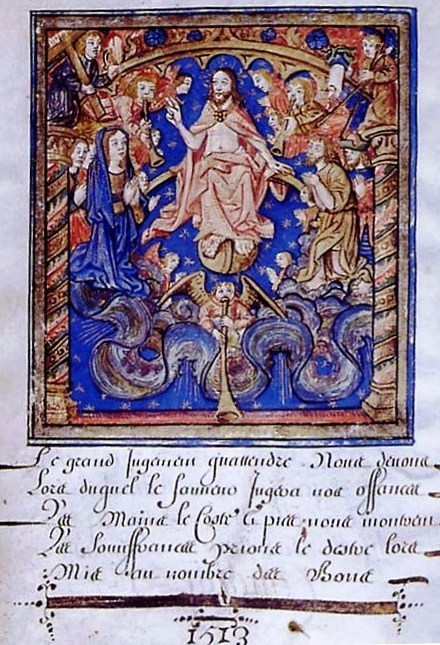 Le grand Jugement quattendre Nous devons
Lors duquel le sauveur Jugera nos offances
Ses Mains le Coste & pies nous montrent
Ses Souffrances prions le destre lors
Mis au nombre des Bons
1513